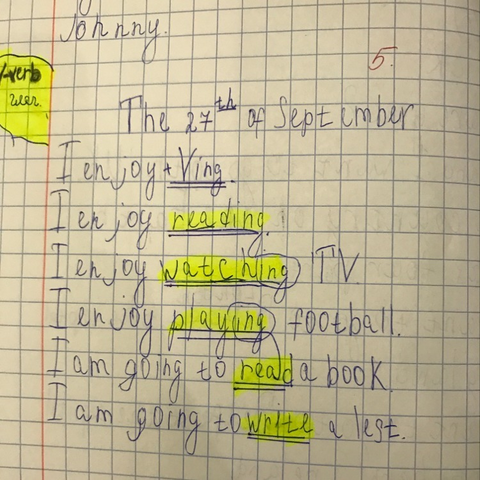 Johnny.
5.
verb
The 27th of September
I enjoy + Ving.
I enjoy reading.
I enjoy watching TV.
I enjoy playing football.
I am going to read a book.
I am going to write a lest.